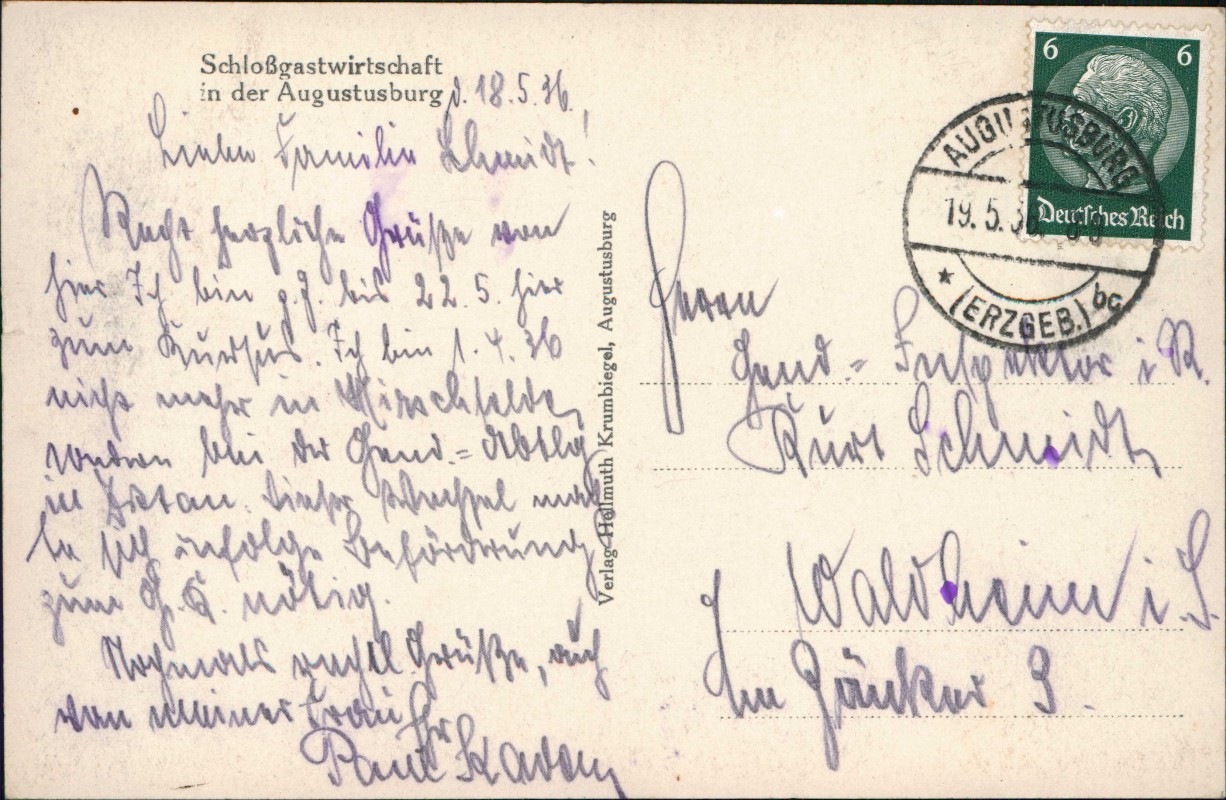 Schloßgastwirtschaft
in der Augustusburg
d. 18.5.36.
Liebe Familie Schmidt!
Recht herzliche Grüße von
hier Ich bin z. Z. bis 22.5. hier
zum Kursus. Ich bin 1.4.36
nicht mehr in Hirschfelde,
sondern bei der Gend.=Abtlg
in Zittau. Dieser Wechsel mach
te sich infolge Beförderung
zum nötig.
Nochmals Grüße, auch
von meiner Frau
Ihr
Paul Kaden
Verlag Hellmuth Krumbiegel, Augustusburg
6 6
Deutsches Reich
AUGUSTUSBURG
19.5.36
(ERZGEB.) bc
Herrn
Gend.= Inspektor i R.
Kurt Schmidt,
Waldheim i. S.
Im 9.